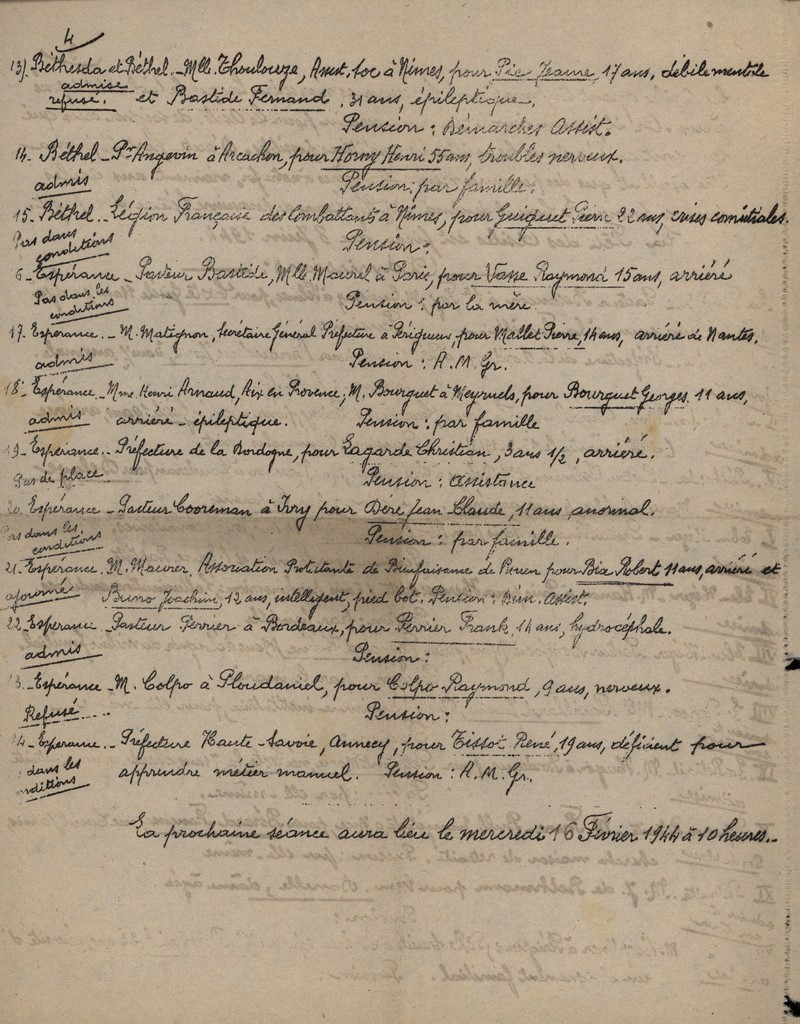 4
13) Béthesda et Béthel. - Mlle Thoulouze, Assist. soc à Nîmes, pour Pic Jeanne, 17 ans, débile mentale
admise
refusé. et Bastide Fernand, 31 ans, épileptique.
Pension : Démarches Assist.
14. Béthel - Pr Angevin à Arcachon, pour Horny Henri 55 ans, troubles nerveux.
admis Pension : par famille.
15. Béthel - Légion Française des Combattants à Nîmes, pour Guiguet Pierre 22 ans, crises comitiales.
Pas dans Pension :
conditions
6 - Espérance - Pasteur Bastide, Mlle Maurel à Paris, pour Vasse Raymond 15 ans, arriéré
Pas dans les Pension : par la mère
conditions
17. Espérance. - M. Matignon, Secrétaire Général Préfecture à Périgueux, pour Mallet Pierre, 14 ans, arriéré de Nantes.
admis Pension : A. M. Gr.
18. Espérance - Mme Henri Arnaud, Aix en Provence, M. Bourguet à Meyrueis, pour Bourguet Georges, 11 ans,
admis arriéré - épileptique. Pension : par famille
19 - Espérance. - Préfecture de la Dordogne, pour Lagarde Christian, 3 ans 1/2, arriéré.
Pas de place Pension : Assistance
20. Espérance - Pasteur Cooreman à Ivry pour Déré Jean Claude, 11 ans anormal.
Pas dans les Pension : par famille.
conditions
21. Espérance - M. Maurer, Association Protestante de Bienfaisance de pour Bia Robert 11 ans, arriéré et
ajourné Bruno Joachim, 12 ans, intelligent, pied bot. Pension : Assist.
22. Espérance - Pasteur Perrier à Bordeaux, pour Perrier Frank, 14 ans, hydrocéphale.
admis Pension :
3. - Espérance - M. Colpo à Ploudaniel, pour Colpo Raymond, 9 ans, nerveux.
Refusé.... Pension :
4 - Espérance. - Préfecture Haute-Savoie, Annecy, pour Tissot René, 19 ans, déficient pour
dans les apprendre métier manuel. Pension : A. M. Gr.
nditions
La prochaine séance aura lieu le mercredi 16 Février 1944 à 10 heures. -